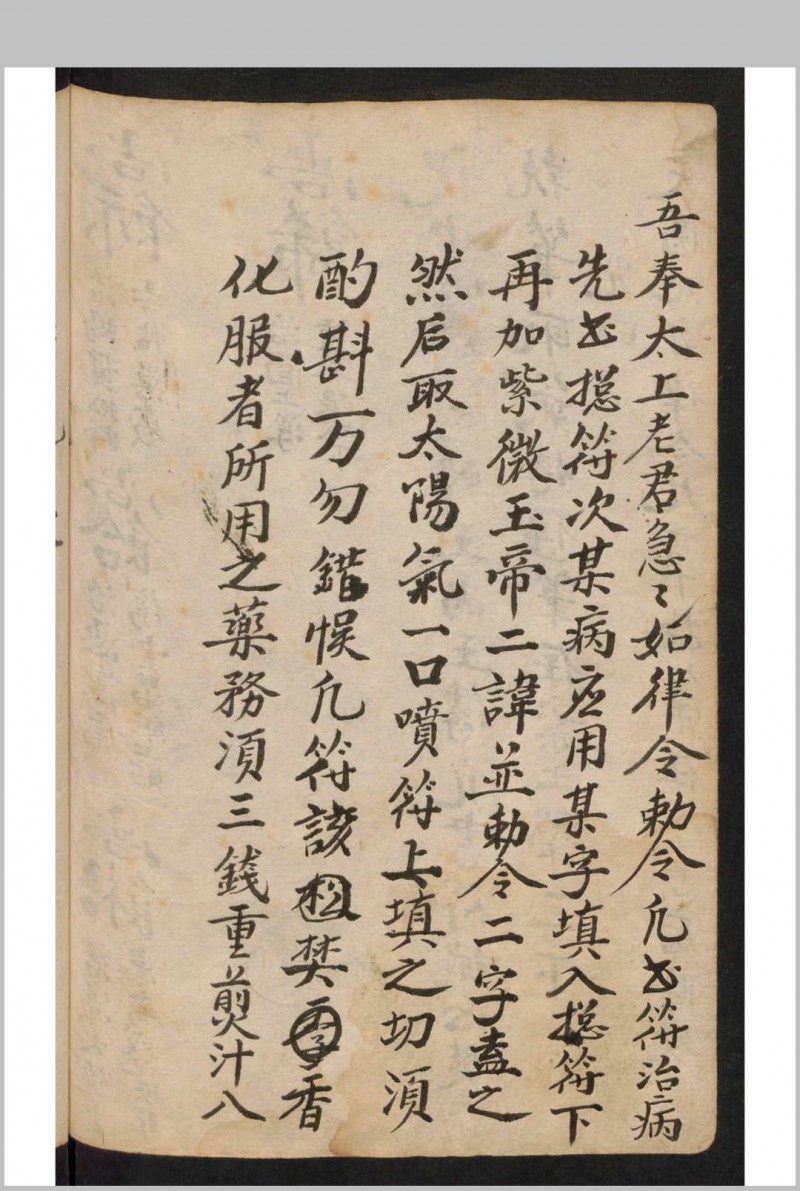 吾奉太上老君急〻如律令勅令凢书符治病
先书揔符次某病应用某字填入揔符下
再加紫微玉帝二諱並勅令二字盖之
然后取太陽氣一口噴符上填之切湏
酌斟万勿錯悮凢符該焚香
化服者所用之藥務湏三錢重煎汁八